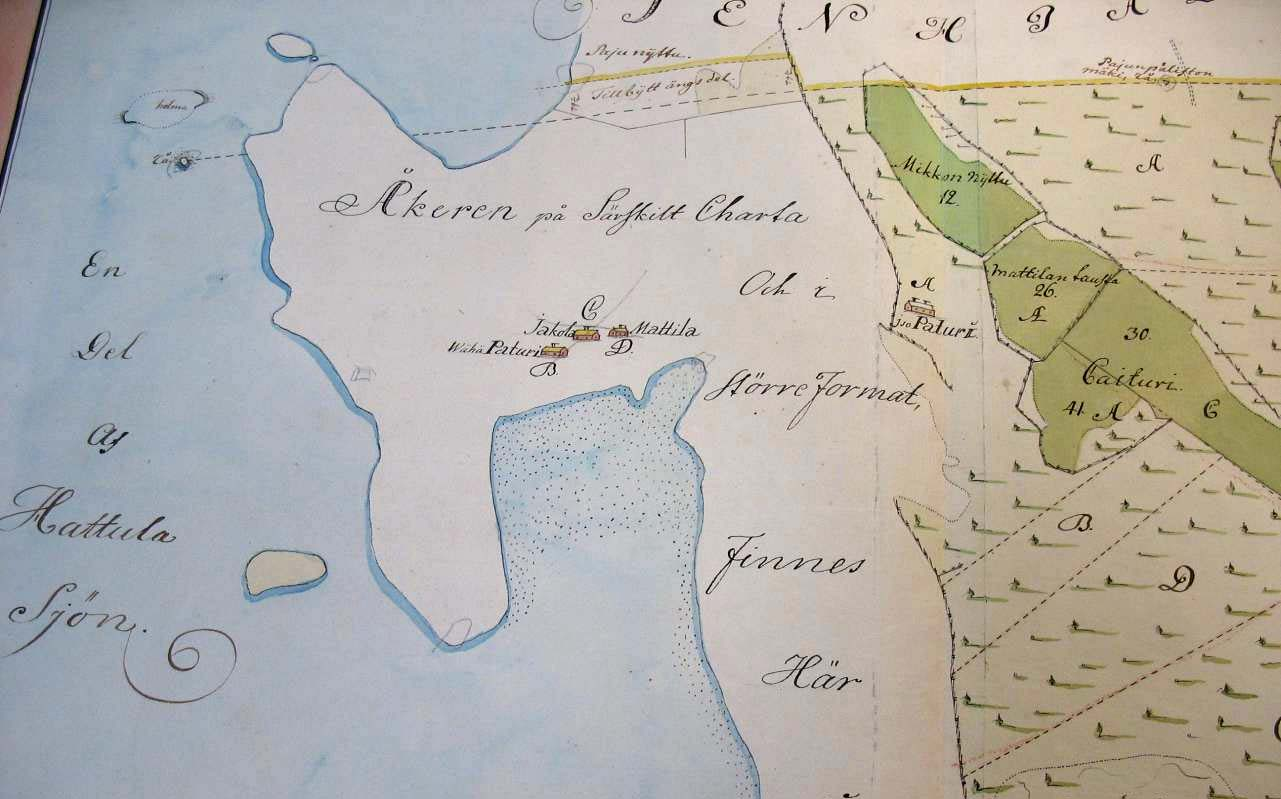 Paju nÿttu.
Tillbÿtt ängs del.
holma
Åkeren på Särskilt Charta
Och i
större Format,
Finnes
Här
En
Del
Af
Hattula
Sjön.
C
Jakola
Mattila
Wähä Paturi
D.
B.
A
iso Paturi
Mikkon Nÿttu
12.
Mattilan tausta
26.
Æ
30.
Caituri.
41 A
C
A
B.
D